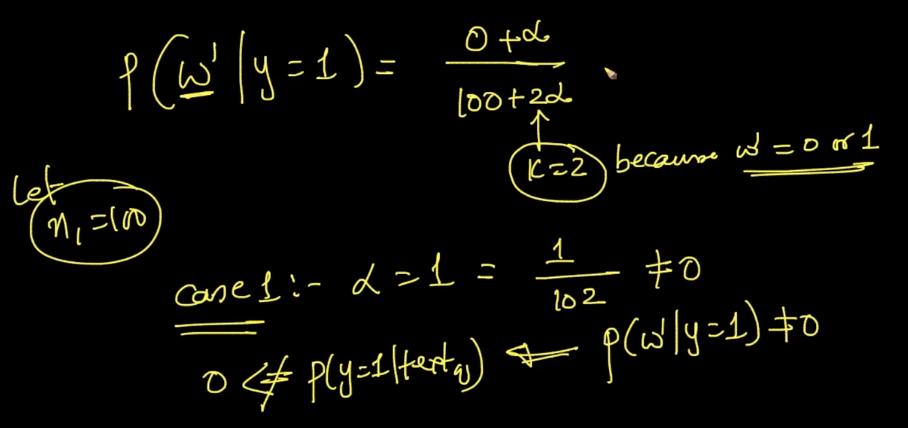 P(w'|y=1) = 0+α / 100+2α
↑
K=2 because w' = 0 or 1
Let
n₁=100
case 1:- α=1 = 1/102 ≠0
0 ⇍≠ P(y=1|text_q) ⇐ P(w'|y=1)≠0